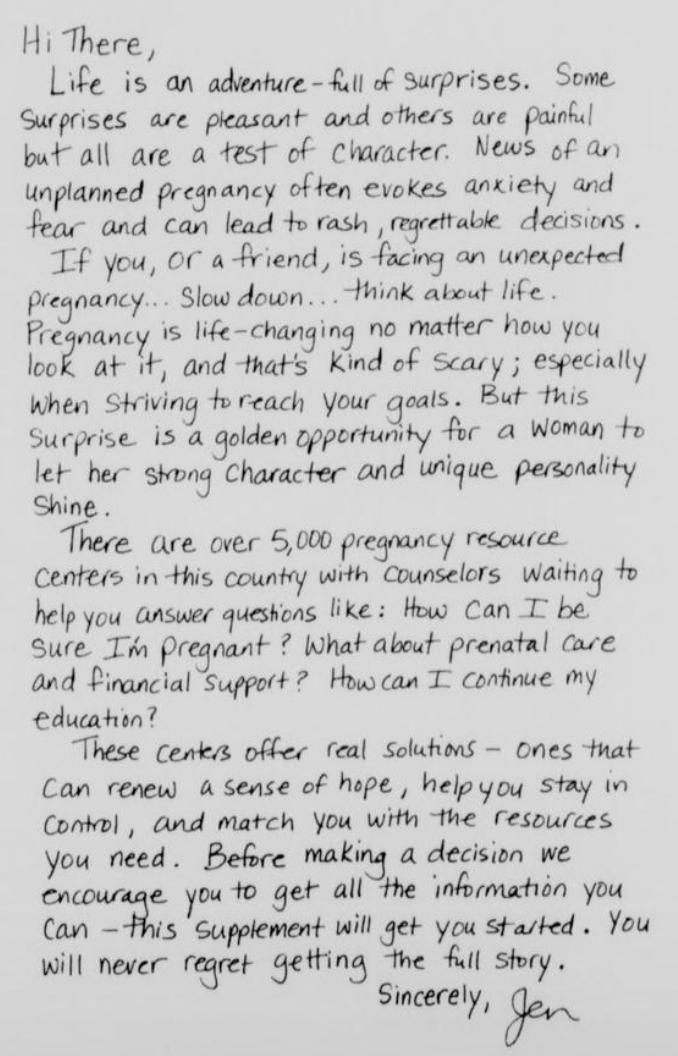 Hi There,
Life is an adventure - full of surprises. Some
surprises are pleasant and others are painful
but all are a test of character. News of an
unplanned pregnancy often evokes anxiety and
fear and can lead to rash, regrettable decisions.
If you, or a friend, is facing an unexpected
pregnancy... Slow down... think about life.
Pregnancy is life-changing no matter how you
look at it, and that's kind of scary; especially
when striving to reach your goals. But this
surprise is a golden opportunity for a woman to
let her strong character and unique personality
shine.
There are over 5,000 pregnancy resource
centers in this country with counselors waiting to
help you answer questions like: How can I be
sure I'm pregnant? What about prenatal care
and financial support? How can I continue my
education?
These centers offer real solutions - ones that
can renew a sense of hope, help you stay in
control, and match you with the resources
you need. Before making a decision we
encourage you to get all the information you
can - this supplement will get you started. You
will never regret getting the full story.
Sincerely, Jen